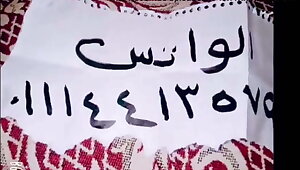 الواتس
٠١١١٤٤١٣٥٧٥